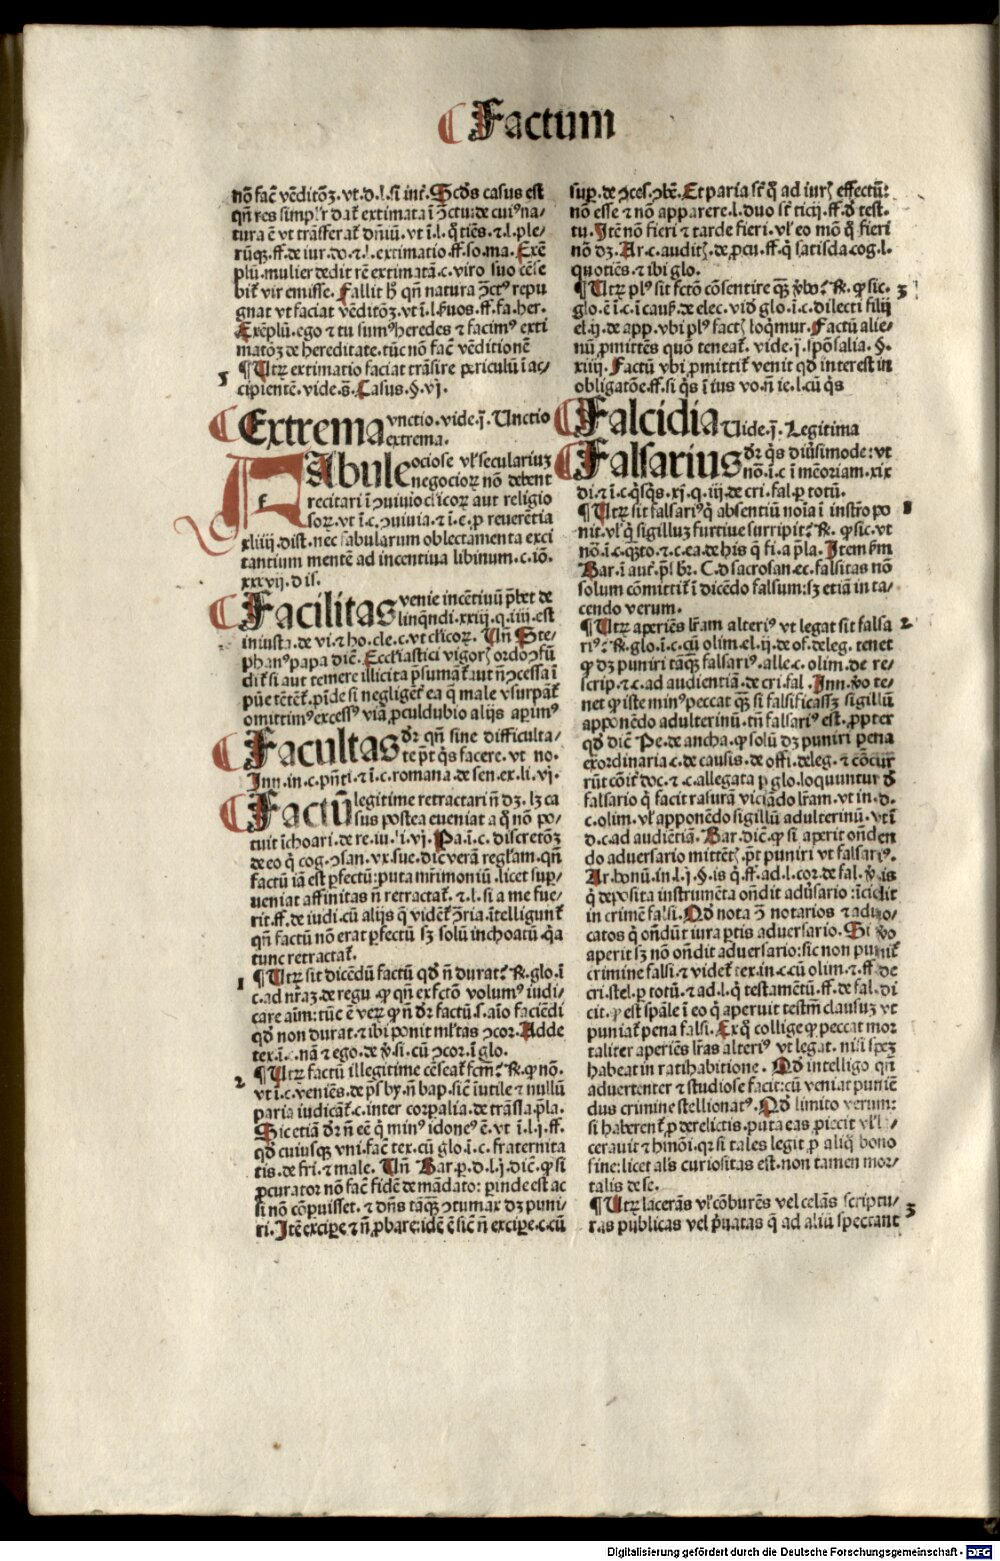 Factum
nō fac̄ vēditōꝫ. vt. d. l. si int̄. Scd̓s casus est
qn̄ res simpl'r dat̄ extimata ī ꝯctu: de cui⁹ na/
tura ē vt trāsferat̄ dn̄iū. vt ī. l. q̄ tiēs. ⁊ l. ple/
rūqꝫ. ff. de iur. do. ⁊ l. extimatio. ff. so. ma. Exē
plū. mulier dedit rē extimatā. c. viro suo cēse
bit̄ vir emisse. Fallit h̄ qn̄ natura ꝯct⁹ repu
gnat vt faciat vēditōꝫ. vt ī. l. ff. fa. her.
Exēplū. ego ⁊ tu sum⁹ heredes ⁊ facim⁹ exti
matōꝫ de hereditate. tūc nō fac̄ vēditionē
¶ Utrꝫ extimatio faciat trāsire periculū ī ac/
5
cipientē. vide. s̄. Casus. §. vj.
Extrema vnctio. vide. j̄. Unctio
extrema.
F
Abule ociose vl' seculariuꝫ
negocioꝝ nō debent
recitari ī ꝯuiuio cl'icoꝝ aut religio
soꝝ. vt ī. c. ꝯuiuia. ⁊ ī. c. p reuerētia
xliiij. dist. nec fabularum oblectamenta exci
tantium mentē ad incentiua libinum. c. iō.
xxxvij. dis.
Facilitas venie incētiuū p̄bet de
linq̄ndi. xxiij. q. iiij. est
iniusta. de vi. ⁊ ho. cle. c. vt cl'icoꝝ. Un̄ Ste/
phan⁹ papa dic̄. Eccl'iastici vigorꝭ ordo ꝯfū
dit̄ si aut temere illicita p̄sumat̄ aut n̄ ꝯcessa ī
pūe tētēt̄. p̄īde si negligēt̄ ea q̄ male vsurpāt̄
omittim⁹ excess⁹ viā ꝓculdubio alijs aperim⁹
Facultas dr̄ qn̄ sine difficulta/
te pt̄ qs facere. vt no.
Inn. in. c. pn̄ti. ⁊ ī. c. romana. de sen. ex. li. vj.
Factū legitime retractari n̄ dꝫ. lꝫ ca
sus postea eueniat a q̄ nō po/
tuit īchoari. de re. iu. li. vj. Pa. ī. c. discretōꝫ
de eo q̄ cog. ꝯsan. vx. sue. dic̄ verā regl'am. qn̄
factū iā est ꝑfectū: puta mr̄imoniū. licet suꝑ/
ueniat affinitas n̄ retractat̄. ⁊ l. si a me fue/
rit. ff. de iudi. cū alijs q̄ vidēt̄ ꝯria. ītelligunt̄
qn̄ factū nō erat ꝑfectū sꝫ solū inchoatū. q̄a
tunc retractat̄.
¶ Utrꝫ sit dicēdū factū qd̓ n̄ durat: R̄. glo. ī
1
c. ad nr̄aꝫ. de regu. ꝙ qn̄ ex fctō volum⁹ iudi/
care aīm: tūc ē veꝝ ꝙ n̄ dr̄ factū s. aīo faciēdi
qd̓ non durat. ⁊ ibi ponit ml'tas ꝯcor. Adde
tex. ī. c. nā ⁊ ego. de v̓. si. cū ꝯcor. ī glo.
¶ Utrꝫ factū illegitime cēseat̄ fcm̄: R̄. ꝙ nō.
2
vt ī. c. veniēs. de p̄sby. n̄ bap. sic̄ īutile ⁊ nullū
paria iudicāt̄. c. inter corꝑalia. de trāsla. p̄la.
Sic etiā dr̄ n̄ eē q̄ min⁹ idone⁹ ē. vt ī. l. j. ff.
qd̓ cuiusqꝫ vni. fac̄ tex. cū glo. ī. c. fraternita
tis. de fri. ⁊ male. Un̄ Bar. p. d. l. j. dic̄. ꝙ si
ꝓcurator nō fac̄ fidē de mādato: perinde est ac
si nō cōpuisset. ⁊ dn̄s tāqꝫ ꝯtumax dꝫ puni/
ri. Itē exciꝑe ⁊ n̄ ꝓbare: idē ē sic̄ n̄ exciꝑe. c. cū
suꝑ. de ꝯces. ꝯbē. Et paria st̄ q̄ ad iurꝭ effectū:
nō esse ⁊ nō apparere. l. duo st̄ ticij. ff. d̓ test.
tu. Itē nō fieri ⁊ tarde fieri. vl' eo mō q̄ fieri
nō dꝫ. Ar. c. auditꝭ. de ꝓcu. ff. q̄ satisda. cog. l.
quotiēs. ⁊ ibi glo.
¶ Utrꝫ pl⁹ sit fctō cōsentire qꝫ v̓bo: R̄. ꝙ sic.
3
glo. ē ī. c. ī cauſ. de elec. vid̓ glo. ī. c. dilecti filij
el. ij. de app. vbi pl⁹ factꝭ loq̄mur. Factū alie/
nū ꝓmittēs quō teneat̄. vide. j̄. spōsalia. §.
xiiij. Factū vbi ꝓmittit̄ venit qd̓ interest in
obligatōe. ff. si q̄s ī ius vo. n̄ ie. l. cū q̄s
Falcidia Uide. j̄. Legitima
Falsarius dr̄ q̄s diu̓simode: vt
nō. ī. c. ī memoriam. xix
di. ⁊ ī. c. q̄sq̄s. xj. q. iij. de cri. fal. p totū.
¶ Utrꝫ sit falsari⁹ q̄ absentiū noīa ī instr̄o po
1
nit. vl' q̄ sigilluꝫ furtiue surripit: R̄. ꝙ sic. vt
nō. ī. c. qꝫto. ⁊ c. ea. de his q̄ fi. a p̄la. Item ẜm
Bar. ī aut̄. p̄l. br̄. C. d̓ sacrosan. ec. falsitas nō
solum cōmittit̄ ī dicēdo falsum: sꝫ etiā in ta/
cendo verum.
¶ Utrꝫ aperiēs l'ram alteri⁹ vt legat sit falsa
2
ri⁹: R̄. glo. ī. c. cū olim. el. ij. de of. deleg. tenet
ꝙ dꝫ puniri tāqꝫ falsari⁹. alle. c. olim. de re/
scrip. ⁊ c. ad audientiā. de cri. fal. Inn. v̓o te/
net ꝙ iste min⁹ peccat qꝫ si falsificassꝫ sigillū
apponēdo adulterinū. tn̄ falsari⁹ est. ꝓpter
qd̓ dic̄ Pe. de ancha. ꝙ solū dꝫ puniri pena
exordinaria c. de causis. de offi. deleg. ⁊ cōcur
rūt cōit̄ doc. ⁊ c. allegata p glo. loquuntur d̓
falsario q̄ facit rasurā viciādo l'ram. vt in. d.
c. olim. vl' apponēdo sigillū adulterinū. vt ī
d. c. ad audiētiā. Bar. dic̄. ꝙ si aperit on̄den
do aduersario mittētꝭ. p̄t puniri vt falsari⁹.
Ar. bonū. in. l. j. §. is q̄. ff. ad. l. cor. de fal. v̓. is
q̄ deposita instrumēta on̄dit adu̓sario: īcidit
in crimē falsi. Qd̓ nota ꝯ̄ notarios ⁊ aduo/
catos q̄ on̄dūt iura ꝑtis aduersario. Si v̓o
aperit sꝫ nō on̄dit aduersario: sic non punit̄
crimine falsi. ⁊ videt̄ tex. in. c. cū olim. ⁊. ff. de
cri. stel. p totū. ⁊ ad. l. q̄ testamētū. ff. de fal. di
cit. ꝙ est spāle ī eo q̄ aperuit testm̄ clausuꝫ vt
puniat̄ pena falsi. Ex q̄ collige ꝙ peccat mor
taliter aperiēs l'ras alteri⁹ vt legat. nisi speꝫ
habeat in ratihabitione. Qd̓ intelligo qn̄
aduertenter ⁊ studiose facit: cū veniat puniē
dus crimine stellionat⁹. Qd̓ limito verum:
si haberent̄ ꝓ derelictis. puta eas ꝓiecit vl' l/
cerauit ⁊ hmōi. qꝛ si tales legit ꝓ aliq̄ bono
fine: licet al's curiositas est. non tamen mor/
talis de se.
¶ Utrꝫ lacerās vl' cōburēs vel celās scriptu/
3
ras publicas vel pᵢuatas q̄ ad aliū spectant
Digitalisierung gefördert durch die Deutsche Forschungsgemeinschaft - DFG